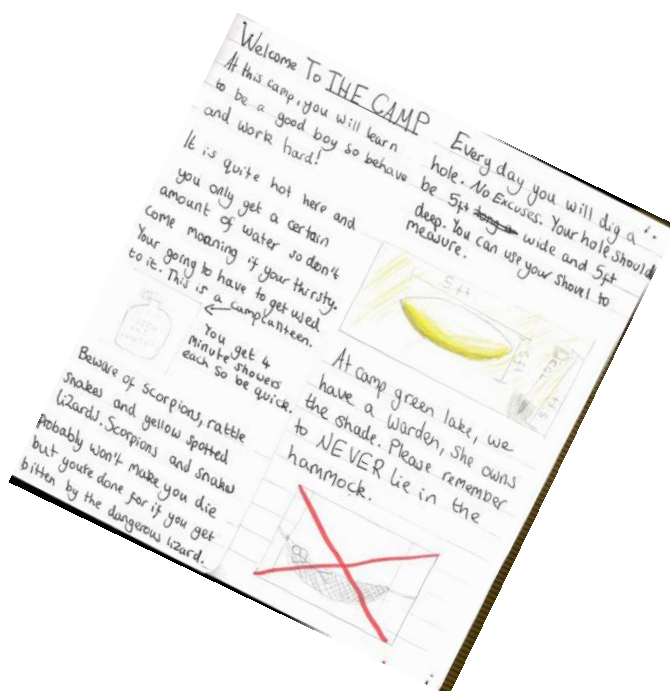 Welcome To THE CAMP
At this camp, you will learn
to be a good boy so behave
and work hard!
It is quite hot here and
you only get a certain
amount of water so don't
come moaning if your thirsty.
Your going to have to get used
to it. This is a camp canteen.
You get 4
minute showers
each so be quick.
Beware of scorpions, rattle
snakes and yellow spotted
lizards. Scorpions and snakes
Probably won't make you die
but you're done for if you get
bitten by the dangerous lizard.
Every day you will dig a
hole. No Excuses. Your hole should
be 5ft long wide and 5ft
deep. You can use your shovel to
measure.
5ft
5ft
Deep
At camp green lake, we
have a Warden, she owns
the shade. Please remember
to NEVER lie in the
hammock.